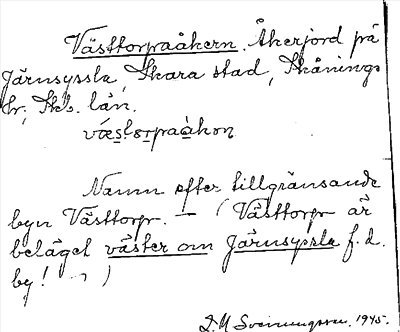 Västtorpaåkern. Åkerjord på
Järnsyssla, Skara stad, Skånings
hr, Skb. län.
væstorpaåkon
Namn efter tillgränsande
byn Västtorp. — (Västtorp är
beläget väster om Järnsyssla f. d.
by! )
1945.